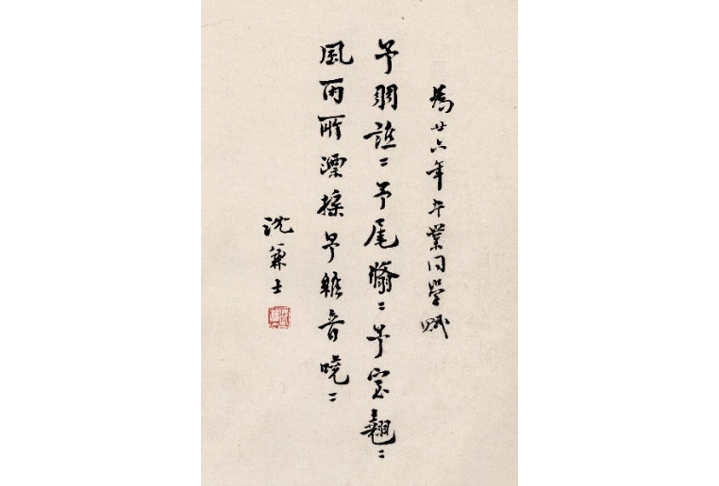 為廿六年卒業同學賦
予羽譙〻予尾翛〻予室翹〻
風雨所漂搖予維音嘵〻
沈兼士